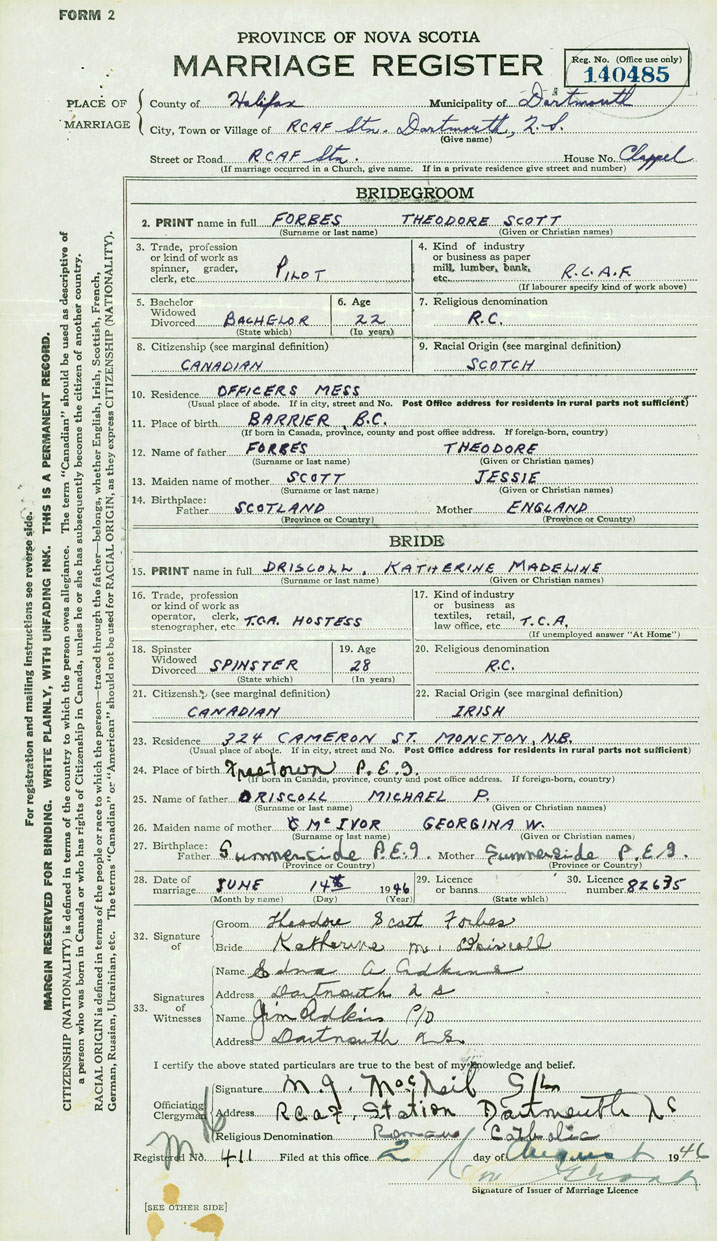 FORM 2
PROVINCE OF NOVA SCOTIA
MARRIAGE REGISTER
Reg. No. (Office use only)
140485
PLACE OF MARRIAGE
County of Halifax Municipality of Dartmouth
City, Town or Village of RCAF Stn. Dartmouth, N.S.
(Give name)
Street or Road RCAF Stn. House No. Chappel
(If marriage occurred in a Church, give name. If in a private residence give street and number)
BRIDEGROOM
2. PRINT name in full FORBES THEODORE SCOTT
(Surname or last name) (Given or Christian names)
3. Trade, profession or kind of work as spinner, grader, clerk, etc. PILOT
4. Kind of industry or business as paper mill, lumber, bank, etc. R.C.A.F.
(If labourer specify kind of work above)
5. Bachelor Widowed Divorced BACHELOR
(State which)
6. Age 22
(In years)
7. Religious denomination R.C.
8. Citizenship (see marginal definition) CANADIAN
9. Racial Origin (see marginal definition) SCOTCH
10. Residence OFFICERS MESS
(Usual place of abode. If in city, street and No. Post Office address for residents in rural parts not sufficient)
11. Place of birth BARRIER, B.C.
(If born in Canada, province, county and post office address. If foreign-born, country)
12. Name of father FORBES THEODORE
(Surname or last name) (Given or Christian names)
13. Maiden name of mother SCOTT JESSIE
(Surname or last name) (Given or Christian names)
14. Birthplace: Father SCOTLAND Mother ENGLAND
(Province or Country) (Province or Country)
BRIDE
15. PRINT name in full DRISCOLL, KATHERINE MADELINE
(Surname or last name) (Given or Christian names)
16. Trade, profession or kind of work as operator, clerk, stenographer, etc. T.C.A. HOSTESS
17. Kind of industry or business as textiles, retail, law office, etc. T.C.A.
(If unemployed answer "At Home")
18. Spinster Widowed Divorced SPINSTER
(State which)
19. Age 28
(In years)
20. Religious denomination R.C.
21. Citizenship (see marginal definition) CANADIAN
22. Racial Origin (see marginal definition) IRISH
23. Residence 324 CAMERON ST. MONCTON, N.B.
(Usual place of abode. If in city, street and No. Post Office address for residents in rural parts not sufficient)
24. Place of birth Freetown P.E.I.
(If born in Canada, province, county and post office address. If foreign-born, country)
25. Name of father DRISCOLL MICHAEL P.
(Surname or last name) (Given or Christian names)
26. Maiden name of mother McIVOR GEORGINA W.
(Surname or last name) (Given or Christian names)
27. Birthplace: Father Summerside P.E.I. Mother Summerside P.E.I.
(Province or Country) (Province or Country)
28. Date of marriage JUNE 14th 1946
(Month by name) (Day) (Year)
29. Licence or banns
(State which)
30. Licence number 82635
32. Signature of
Groom Theodore Scott Forbes
Bride Katherine M. Driscoll
33. Signatures of Witnesses
Name Edna A Adkins
Address Dartmouth N S
Name Jim Adkins P/O
Address Dartmouth N.S.
I certify the above stated particulars are true to the best of my knowledge and belief.
Officiating Clergyman
Signature M. J. MacNeil S/L
Address R.C.A.F. Station Dartmouth NS
Religious Denomination Roman Catholic
Registered No. 411 Filed at this office 2 day of August 1946
Signature of Issuer of Marriage Licence
[SEE OTHER SIDE]
For registration and mailing instructions see reverse side.
MARGIN RESERVED FOR BINDING. WRITE PLAINLY, WITH UNFADING INK. THIS IS A PERMANENT RECORD.
CITIZENSHIP (NATIONALITY) is defined in terms of the country to which the person owes allegiance. The term "Canadian" should be used as descriptive of
a person who was born in Canada or who has rights of Citizenship in Canada, unless he or she has subsequently become the citizen of another country.
RACIAL ORIGIN is defined in terms of the people or race to which the person—traced through the father—belongs, whether English, Irish, Scottish, French,
German, Russian, Ukrainian, etc. The terms "Canadian" or "American" should not be used for RACIAL ORIGIN, as they express CITIZENSHIP (NATIONALITY).